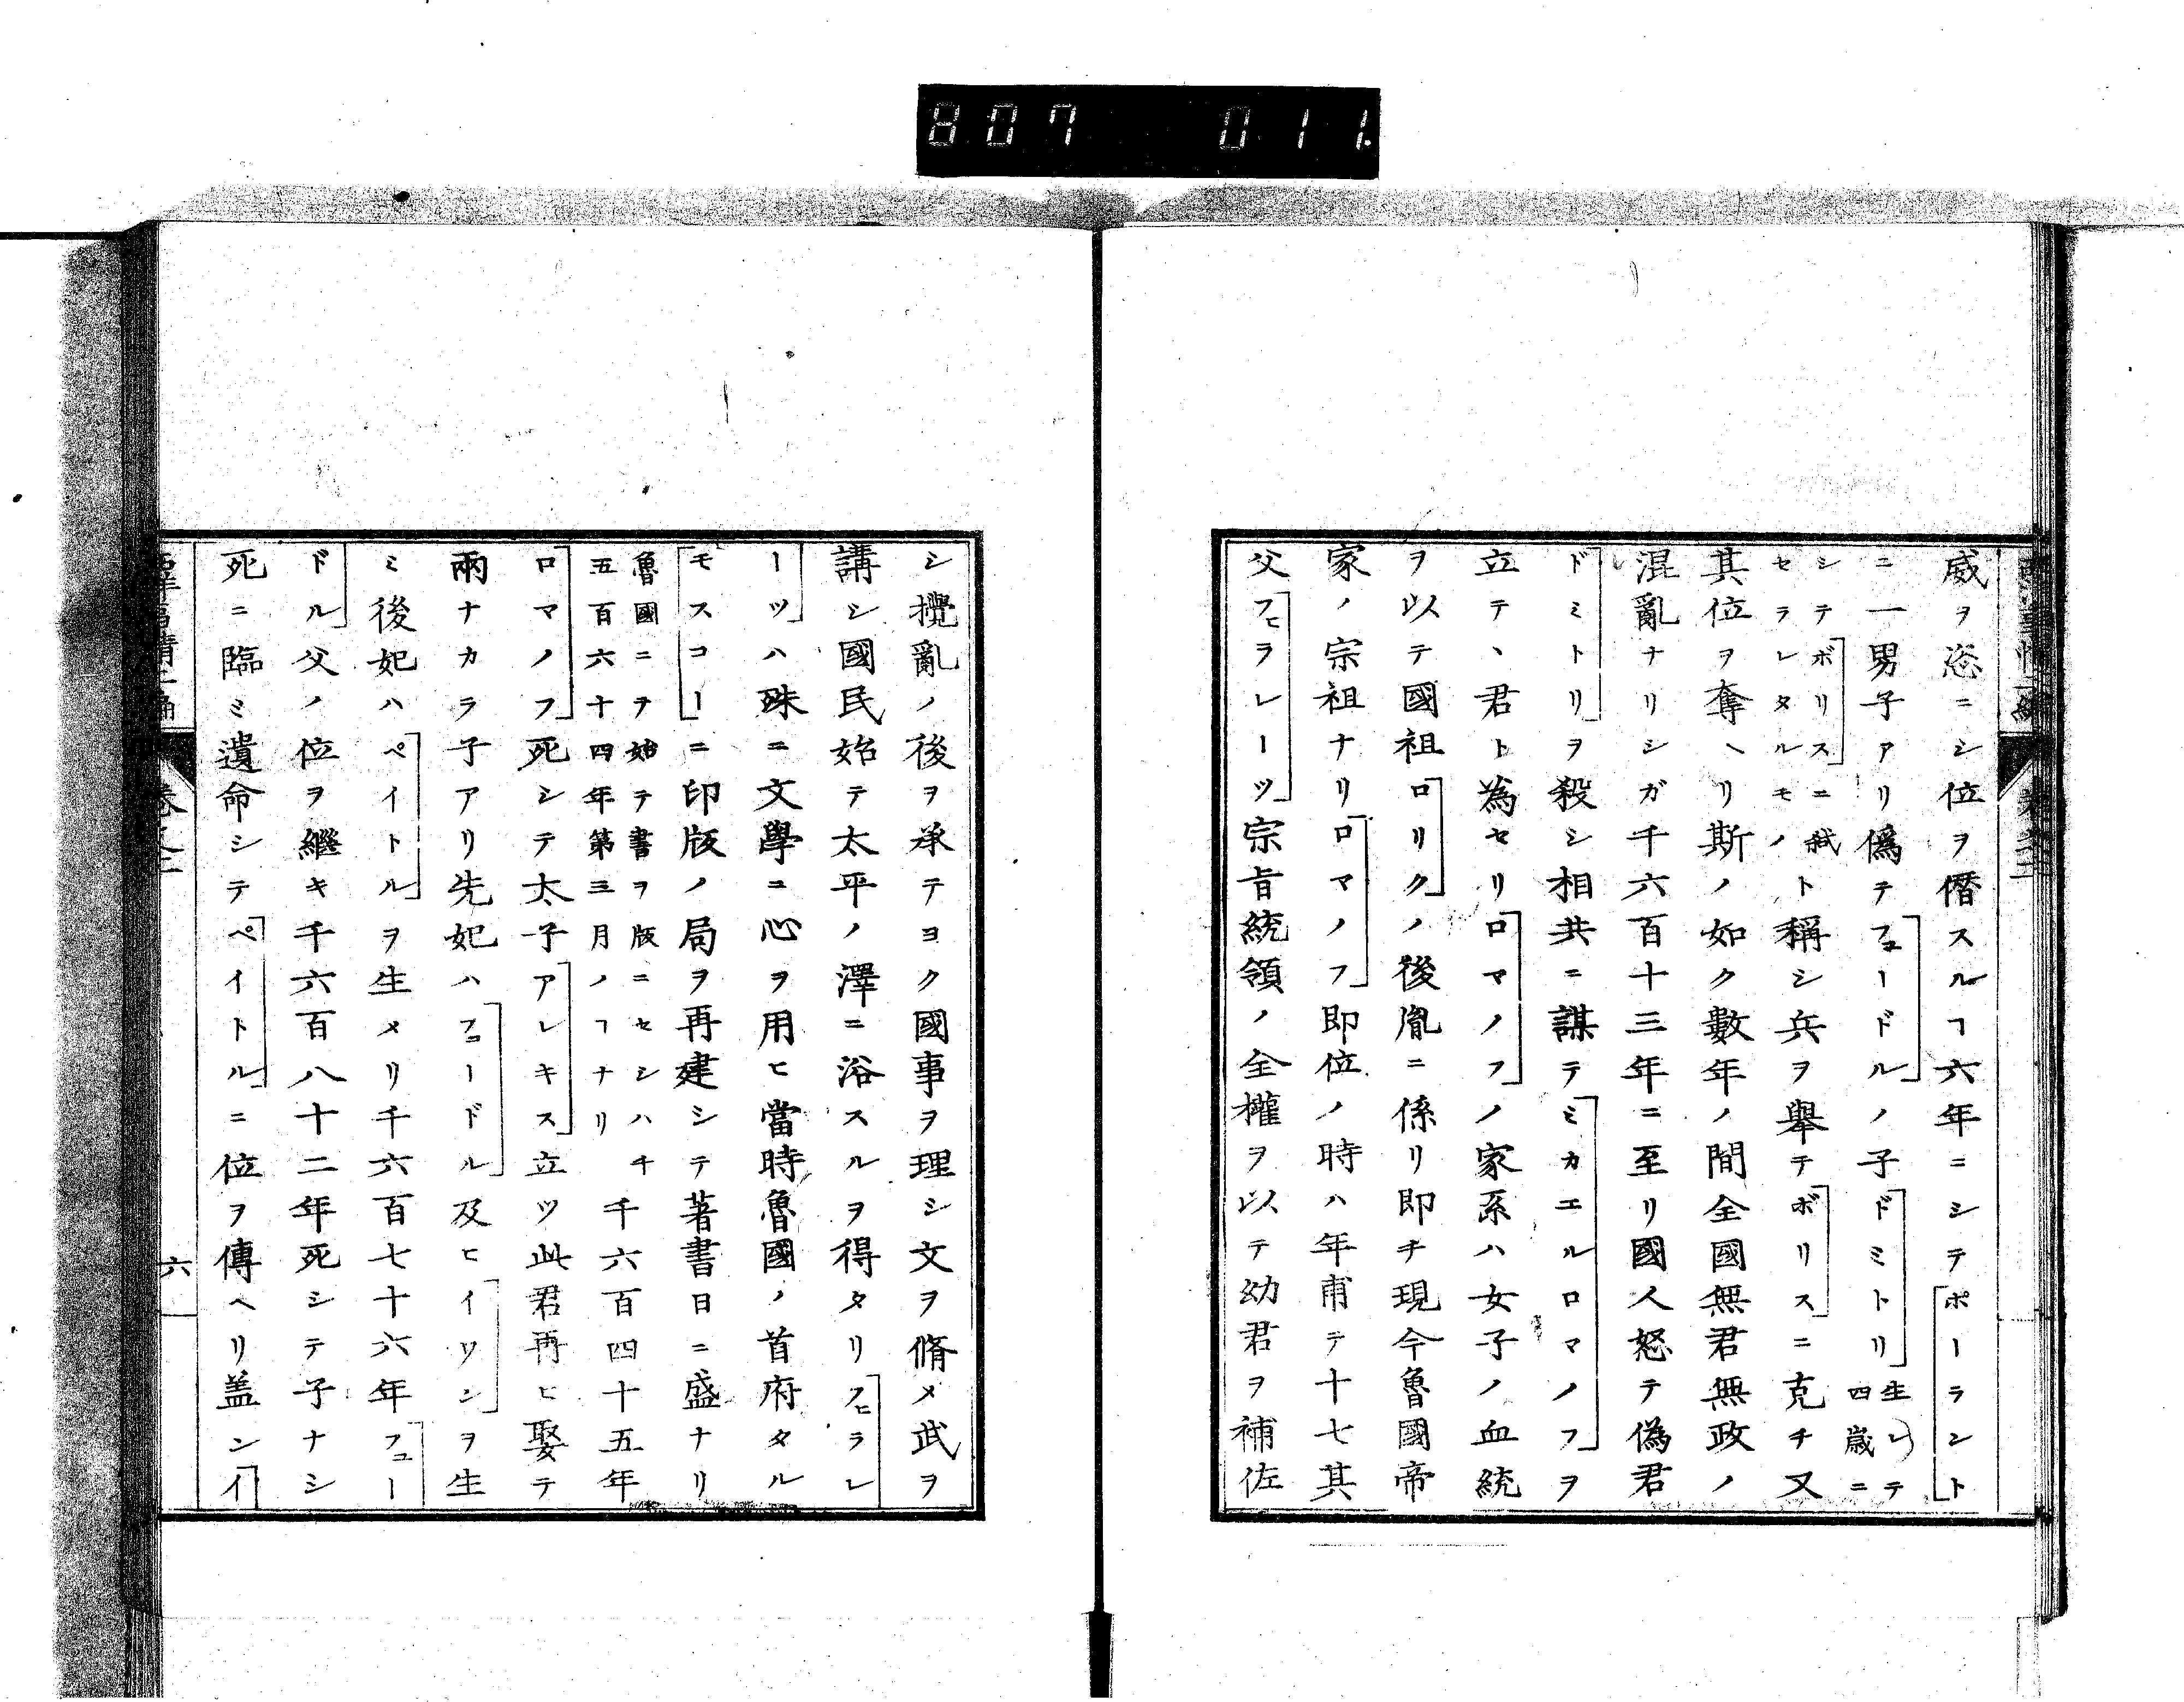 807 011
威ヲ恣ニシ位ヲ僭スルヿ六年ニシテポーラント
ニ一男子アリ偽テフェードルノ子ドミトリ生レテ四歳ニ
シテボリスニ弑セラレタルモノト稱シ兵ヲ擧テボリスニ克チ又
其位ヲ奪ヘリ斯ノ如ク數年ノ間全國無君無政ノ
混亂ナリシガ千六百十三年ニ至リ國人怒テ偽君
ドミトリヲ殺シ相共ニ謀テミカエルロマノフヲ
立テヽ君ト為セリロマノフノ家系ハ女子ノ血統
ヲ以テ國祖ロリクノ後胤ニ係リ即チ現今魯國帝
家ノ宗祖ナリロマノフ即位ノ時ハ年甫テ十七其
父フヒラレーツ宗旨統領ノ全權ヲ以テ幼君ヲ補佐
シ攪亂ノ後ヲ承テヨク國事ヲ理シ文ヲ脩メ武ヲ
講シ國民始テ太平ノ澤ニ浴スルヲ得タリフヒラレ
ーツハ殊ニ文學ニ心ヲ用ヒ當時魯國ノ首府タル
モスコーニ印版ノ局ヲ再建シテ著書日ニ盛ナリ
魯國ニテ始テ書ヲ版ニセシハ千五百六十四年第三月ノヿナリ千六百四十五年
ロマノフ死シテ太子アレキス立ツ此君再ヒ娶テ
兩ナカラ子アリ先妃ハフヨードル及ヒイワンヲ生
ミ後妃ハペイトルヲ生メリ千六百七十六年フェー
ドル父ノ位ヲ継キ千六百八十二年死シテ子ナシ
死ニ臨ミ遺命シテペイトルニ位ヲ傳ヘリ盖シイ
卷之二
六